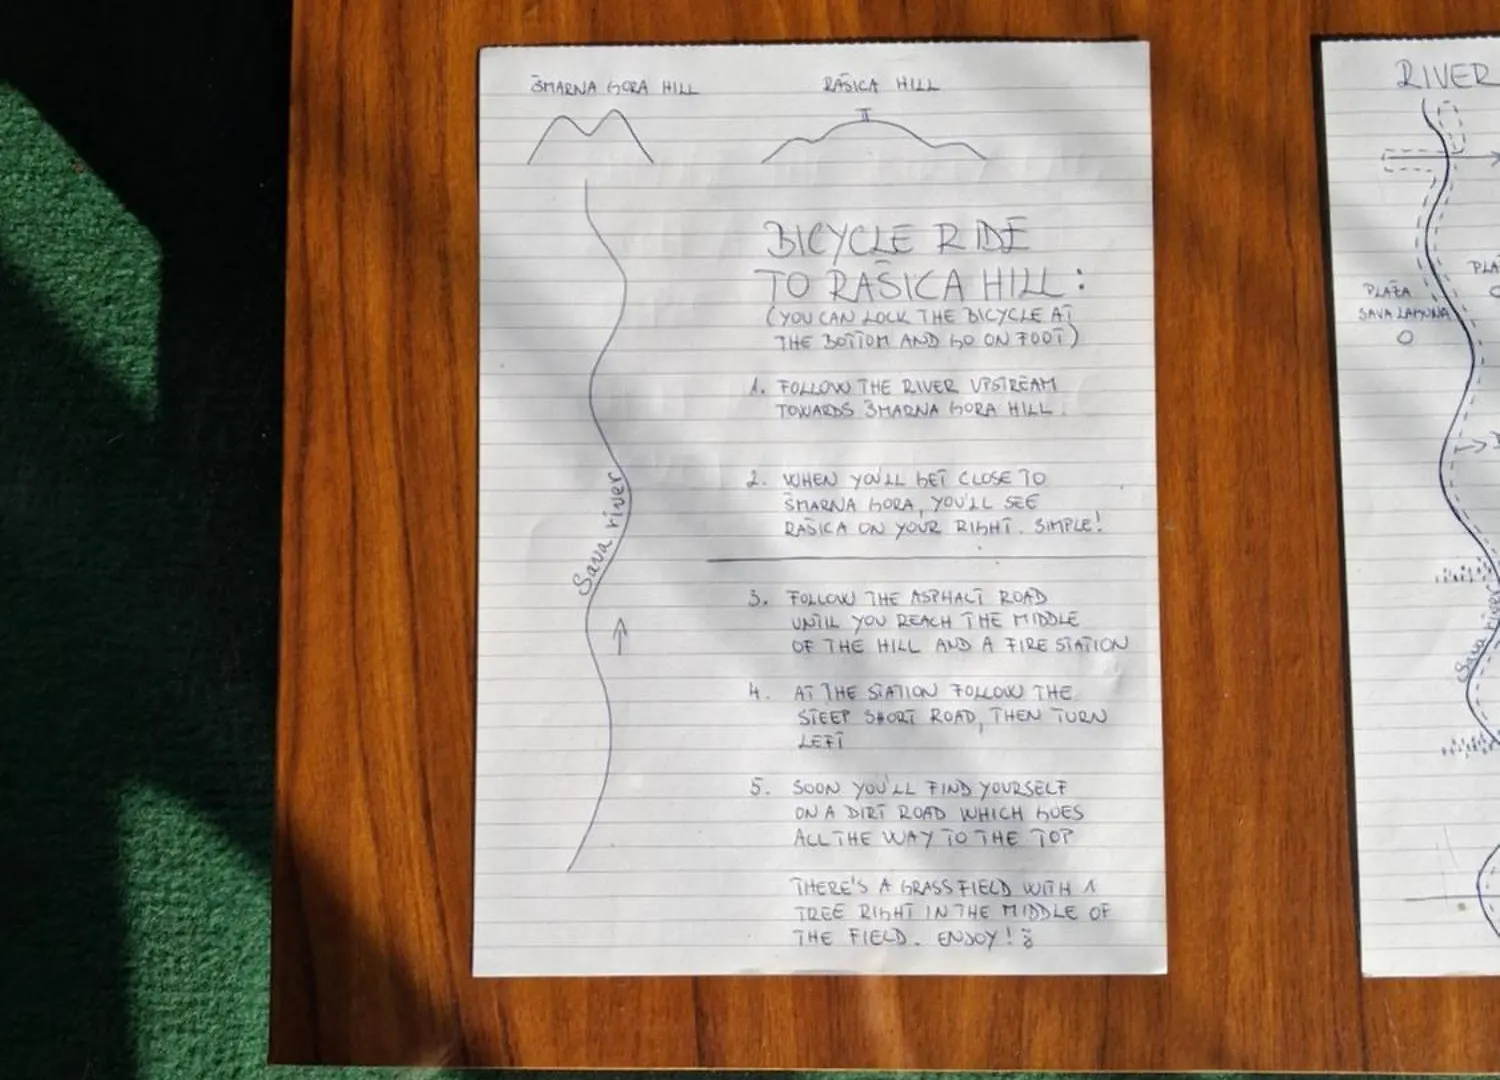 ŠMARNA GORA HILL
RAŠICA HILL
BICYCLE RIDE
TO RAŠICA HILL:
(YOU CAN LOCK THE BICYCLE AT
THE BOTTOM AND GO ON FOOT)
1. FOLLOW THE RIVER UPSTREAM
TOWARDS ŠMARNA GORA HILL.
2. WHEN YOU'LL GET CLOSE TO
ŠMARNA GORA, YOU'LL SEE
RAŠICA ON YOUR RIGHT. SIMPLE!
3. FOLLOW THE ASPHALT ROAD
UNTIL YOU REACH THE MIDDLE
OF THE HILL AND A FIRE STATION
4. AT THE STATION FOLLOW THE
STEEP SHORT ROAD, THEN TURN
LEFT
5. SOON YOU'LL FIND YOURSELF
ON A DIRT ROAD WHICH GOES
ALL THE WAY TO THE TOP
THERE'S A GRASS FIELD WITH 1
TREE RIGHT IN THE MIDDLE OF
THE FIELD. ENJOY!
Sava river
RIVER
PLAŽA
SAVA LAGUNA
Sava river